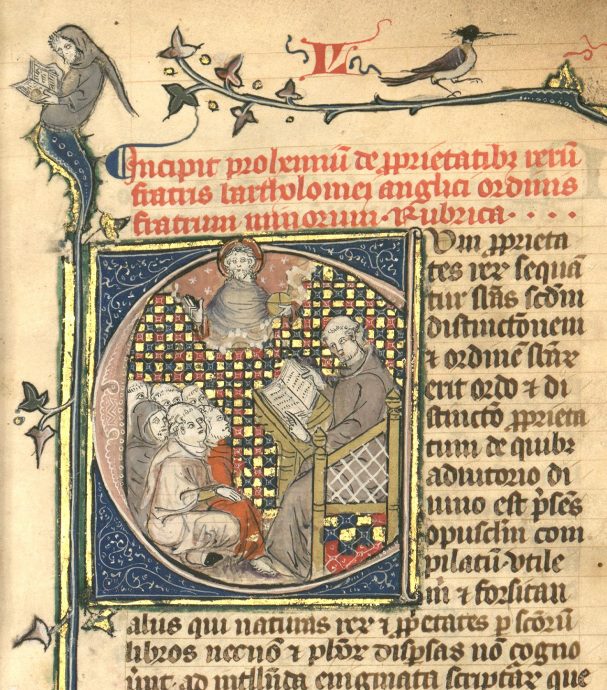 Incipit prohemiũ de ꝓprietatibꝫ rerũ
fratris bartholomei anglici ordinis
fratrum minorum · Rubrica · · · ·
Vm ꝓprieta
tes reꝝ sequã
tur sb̃as scdm
distinctõnem
⁊ ordinẽ sb̃aꝝ
erit ordo ⁊ di
stinctõ ꝓprieta
tum de quibꝫ
adiutorio di
uino est p̃ñs
opusclm com
pilatũ vtile
m̃ ⁊ forsitan
aliis qui naturas reꝝ ⁊ ꝓp̃etates ꝑ sc̃orũ
libros necnõ ⁊ ph̃oꝝ disp̃sas nõ cogno
ũnt · ad intll̃nda enigmata scripturaꝝ que